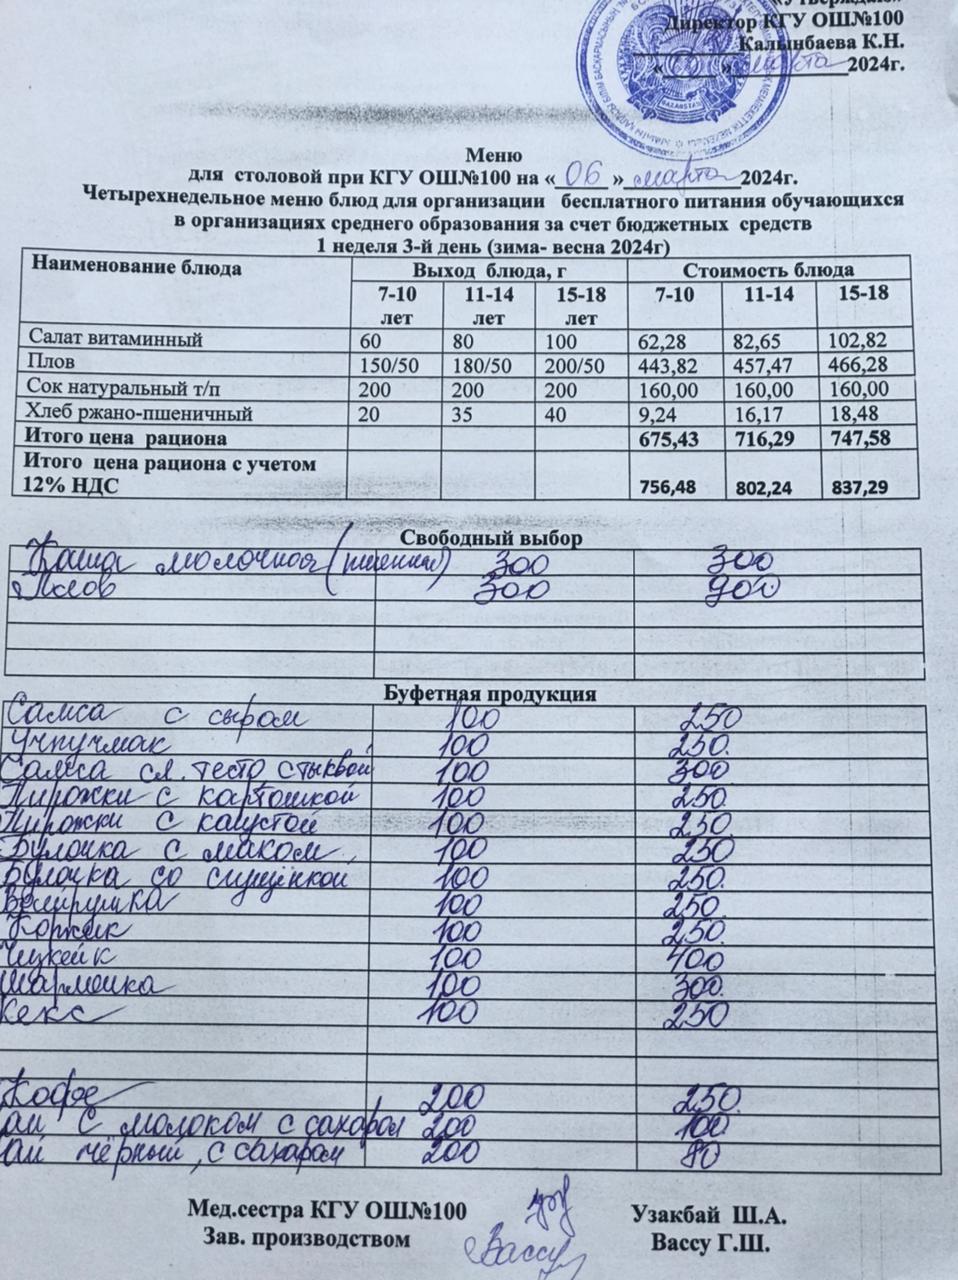 «Утверждаю»
Директор КГУ ОШ№100
Калынбаева К.Н.
« 06 » марта 2024г.
KAZAKHSTAN
Меню
для столовой при КГУ ОШ№100 на « 06 » марта 2024г.
Четырехнедельное меню блюд для организации бесплатного питания обучающихся
в организациях среднего образования за счет бюджетных средств
1 неделя 3-й день (зима- весна 2024г)
Наименование блюда Выход блюда, г Стоимость блюда
7-10 лет 11-14 лет 15-18 лет 7-10 11-14 15-18
Салат витаминный 60 80 100 62,28 82,65 102,82
Плов 150/50 180/50 200/50 443,82 457,47 466,28
Сок натуральный т/п 200 200 200 160,00 160,00 160,00
Хлеб ржано-пшеничный 20 35 40 9,24 16,17 18,48
Итого цена рациона 675,43 716,29 747,58
Итого цена рациона с учетом
12% НДС 756,48 802,24 837,29
Свободный выбор
Каша молочная 300 300
Плов 300 900
Буфетная продукция
Самса с сыром 100 250
Учпучмак 100 250.
Самса сл. тесто с тыквой 100 300
Пирожки с картошкой 100 250
Пирожки с капустой 100 250
Булочка с маком 100 250
Булочка со сгущёнкой 100 250.
Ватрушка 100 250.
Коржик 100 250.
Чизкейк 100 400
Шарлотка 100 300.
Кекс 100 250
Кофе 200 250.
ай с молоком с сахаром 200 100
ай чёрный, с сахаром 200 80
Мед.сестра КГУ ОШ№100 Узакбай Ш.А.
Зав. производством Вассу Вассу Г.Ш.